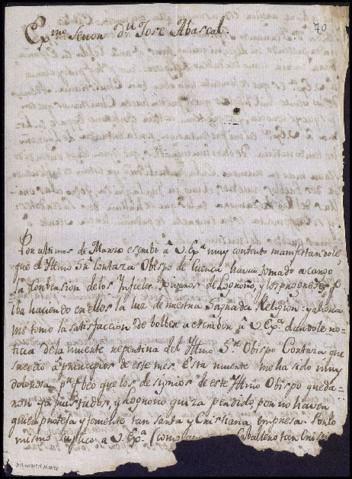 Exmo Señor Dn Jose Abascal.
70
Por ultimos de Marzo escribi a V.Exa muy contento manifestandole
que el Iltmo Sr Contaza Obispo de Cuenca havia tomado a cargo
la Conversion de los Infieles de Logroño, y los progresos q
iba haciendo en ellos la luz de nuestra Sagrada Religion: y ahora
me tomo la satisfaccion de bolber a escribir a V.Exa dandole no-
ticia de la muerte repentina del Iltmo Sr Obispo Contaza que
sucedio a principios de este mes. Esta muerte me ha sido muy
dolorosa pr q veo que los designios de este Iltmo Obispo queda-
ron ya frustrados, y Logroño quiza perdido por no haver
quien proteja y fomente tan Santa y Cristiana Empresa. Por lo
mismo suplico a V.Exa como Caballero tan Cristi